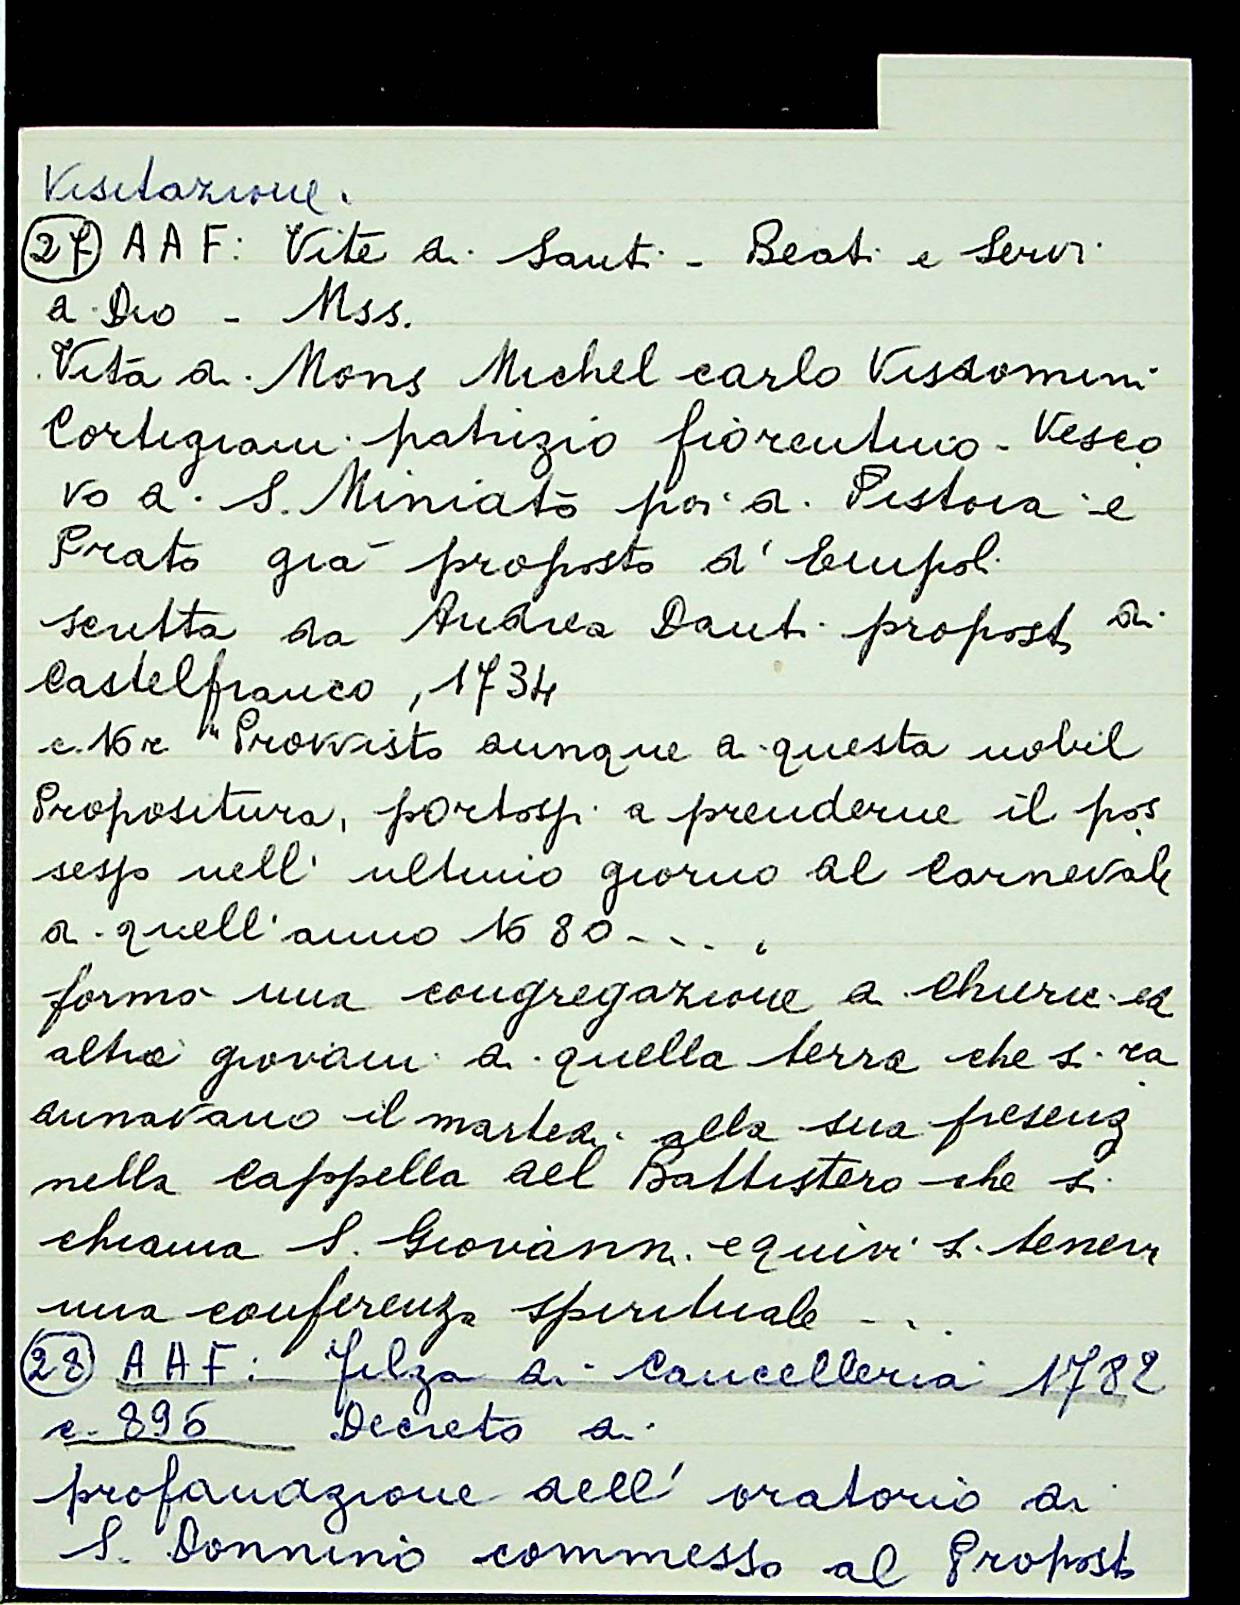 Visitazione.
(27) AAF: Vite di Santi - Beati e Servi
di Dio - Mss.
Vita di Mons Michel carlo Visdomini
Cortigiani patrizio fiorentino - Vesco
vo di S. Miniato poi di Pistoia e
Prato già proposto d'Empoli
scritta da Andrea Danti proposto di
Castelfranco, 1734
c. 16 r "Provvisto dunque di questa nobil
Propositura, portossi a prenderne il pos
sesso nell' ultimo giorno del Carnevale
di quell'anno 1680 - . . .
formò una congregazione di Chierici ed
altri giovani di quella terra che si ra
dunavano il martedi alla sua presenza
nella Cappella del Battistero che si
chiama S. Giovanni e quivi si tenevi
una conferenza spirituale - . .
(28) AAF: Filza di Cancelleria 1782
c. 896 Decreto di
profanazione dell' oratorio di
S. Donnino commesso al Proposto